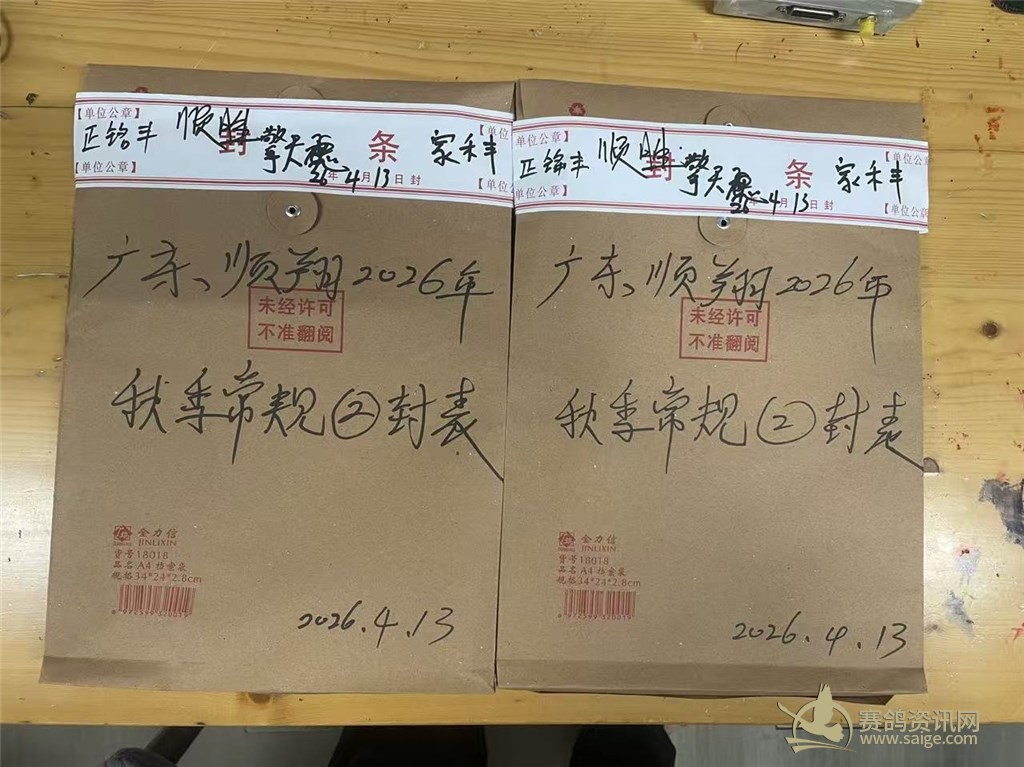 【单位公章】
正铭丰 顺翱 封 擎天 条 家禾丰
【单位公章】
26年4月13日 封
广东、顺翔2026年
未经许可
不准翻阅
秋季常规②封表
金力信
JINLIXIN
货号18018
品名A4 档案袋
规格34*24*2.8cm
2026.4.13
【单位公章】
正铭丰 封 擎天 条 家禾丰
【单位公章】
26年4月13日 封
广东、顺翔2026年
未经许可
不准翻阅
秋季常规②封表
金力信
JINLIXIN
货号18018
品名A4 档案袋
规格34*24*2.8cm
2026.4.13
赛鸽资讯网
www.saige.com